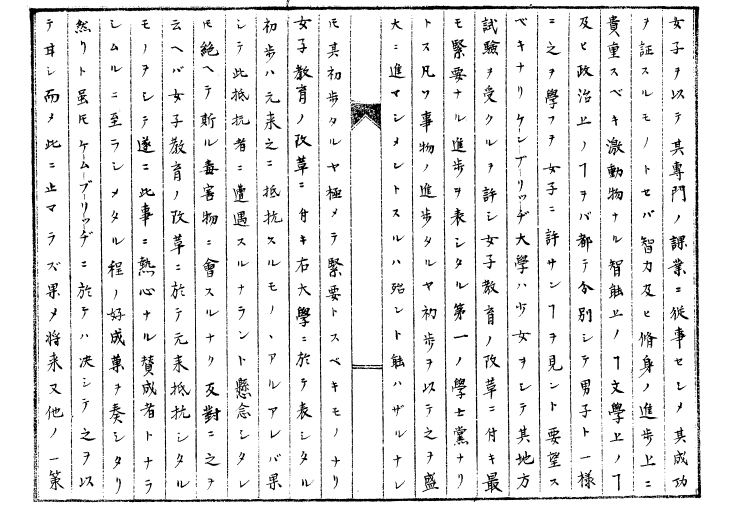 女子ヲ以テ其專門ノ課業ニ從事セシメ其成功
ヲ証スルモノトセバ智力及ヒ脩身ノ進歩上ニ
貴重スベキ激動物ナル智能上ノヿ文學上ノヿ
及ヒ政治上ノヿヲバ都テ分別シテ男子ト一樣
ニ之ヲ學フヲ女子ニ許サンヿヲ見ント要望ス
ベキナリケンブーリッヂ大學ハ少女ヲシテ其地方
試驗ヲ受クルヲ許シ女子教育ノ改革ニ付キ最
モ緊要ナル進歩ヲ表シタル第一ノ學士黨ナリ
トス凡ソ事物ノ進歩タルヤ初歩ヲ以テ之ヲ盛
大ニ進マシメントスルハ殆ント能ハザルナレ
𪜈其初歩タルヤ極メテ緊要トスベキモノナリ
女子教育ノ改革ニ付キ右大學ニ於テ表シタル
初歩ハ元来之ニ抵抗スルモノヽアルアレバ果
シテ此抵抗者ニ遭遇スルナラント懸念シタレ
𪜈絶ヘテ斯ル毒害物ニ會スルナク反對ニ之ヲ
云ヘバ女子教育ノ改革ニ於テ元来抵抗シタル
モノヲシテ遂ニ此事ニ熱心ナル賛成者トナラ
シムルニ至ラシメタル程ノ好成菓ヲ奏シタリ
然リト虽𪜈ケームブーリッヂニ於テハ决シテ之ヲ以
テ耳シ而メ此ニ止マラズ果メ将来又他ノ一策